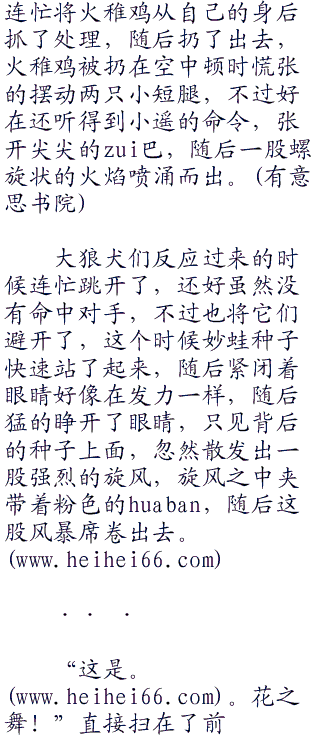 连忙将火稚鸡从自己的身后
抓了处理，随后扔了出去，
火稚鸡被扔在空中顿时慌张
的摆动两只小短腿，不过好
在还听得到小遥的命令，张
开尖尖的zui巴，随后一股螺
旋状的火焰喷涌而出。(有意
思书院)
大狼犬们反应过来的时
候连忙跳开了，还好虽然没
有命中对手，不过也将它们
避开了，这个时候妙蛙种子
快速站了起来，随后紧闭着
眼睛好像在发力一样，随后
猛的睁开了眼睛，只见背后
的种子上面，忽然散发出一
股强烈的旋风，旋风之中夹
带着粉色的huaban，随后这
股风暴席卷出去。
(www.heihei66.com)
．．．
“这是。
(www.heihei66.com)。花之
舞！”直接扫在了前